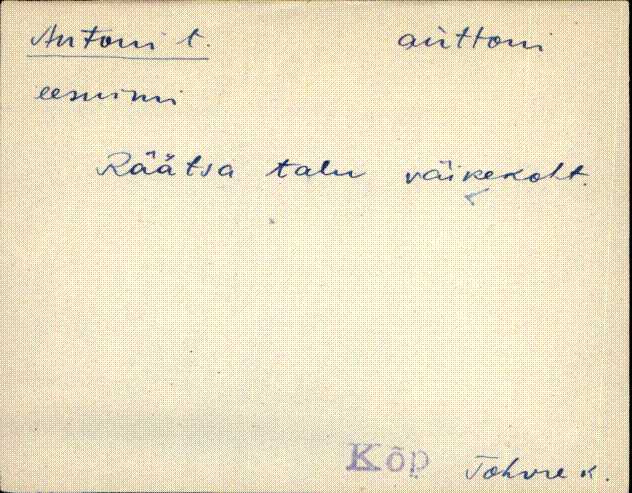 Antoni t. anttoni
eesnimi
Räätsa talu väikekoht.
Kõp Tohvre k.